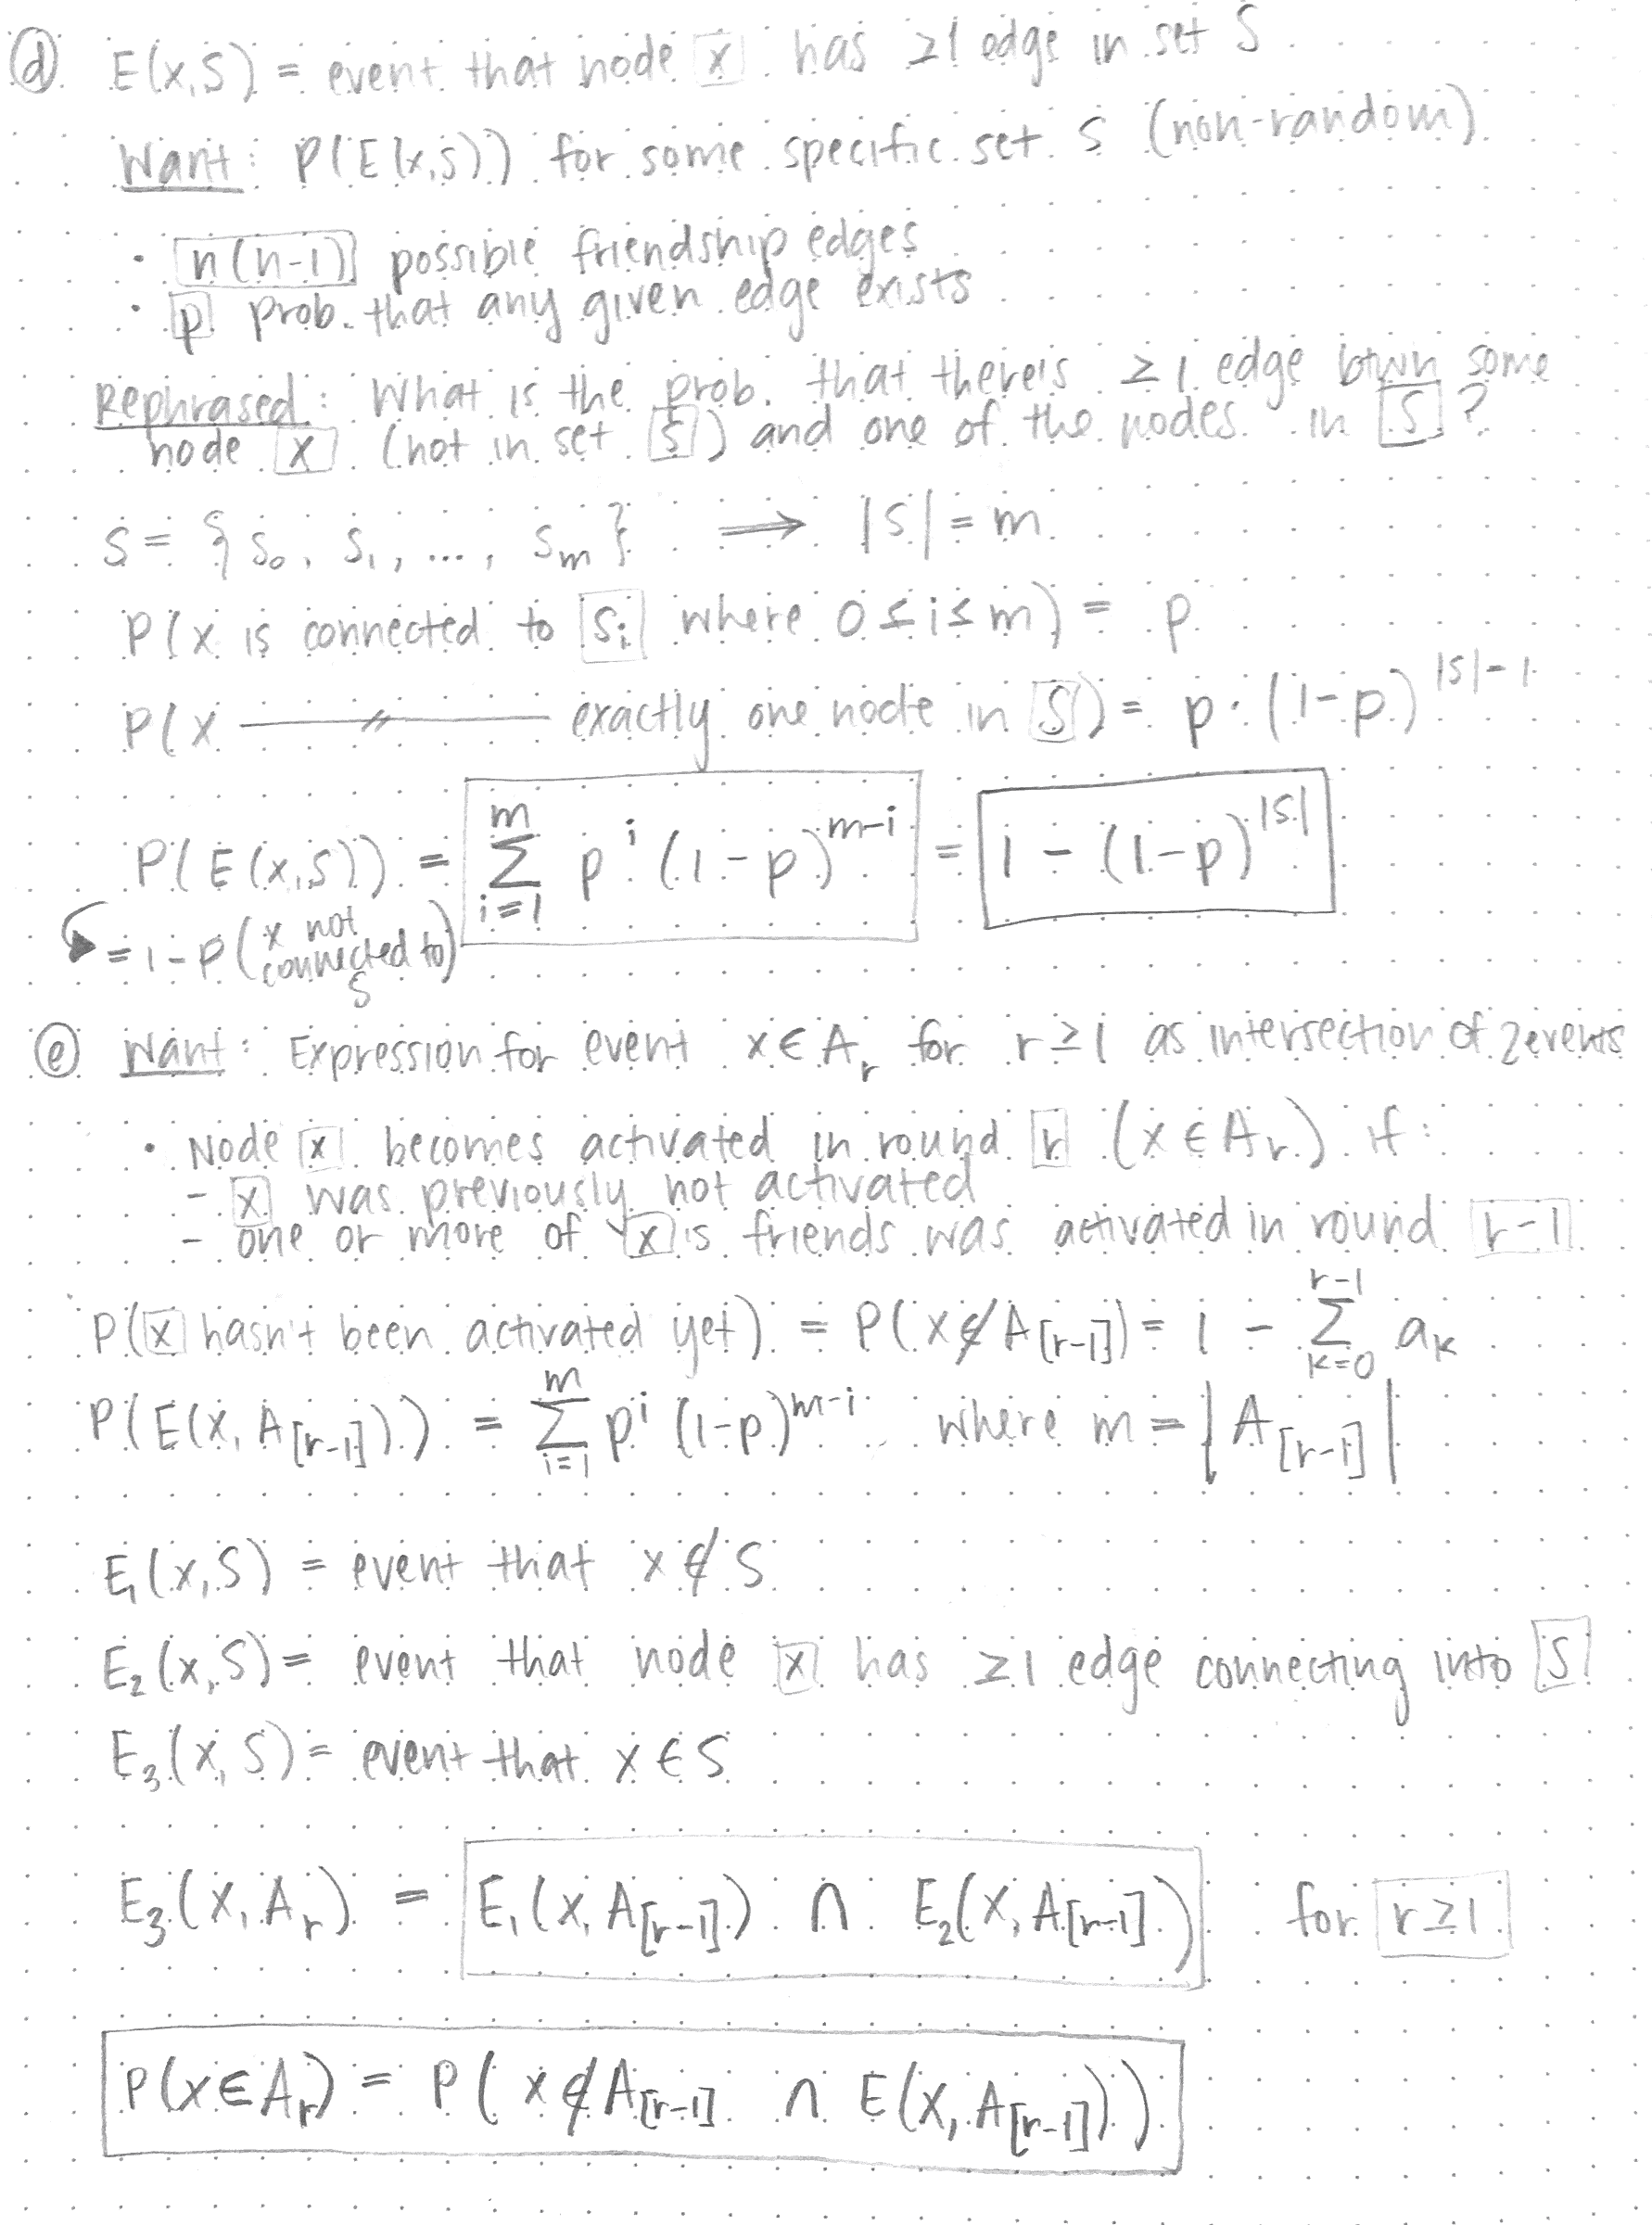 (d) E(x,S) = event that node x has ≥1 edge in set S
Want: P(E(x,S)) for some specific set S (non-random)
• n(n-1) possible friendship edges
• p prob. that any given edge exists
Rephrased: What is the prob. that there's ≥1 edge btwn some
node x (not in set S) and one of the nodes in S?
S = {s₀, s₁, ..., sₘ} ⟹ |S| = m
P(x is connected to sᵢ where 0 ≤ i ≤ m) = p
P(x —〃— exactly one node in S) = p · (1-p)^{|S|-1}
P(E(x,S)) = ∑_{i=1}^{m} p^i (1-p)^{m-i} = 1 - (1-p)^{|S|}
= 1-P(x not connected to S)
(e) Want: Expression for event x ∈ A_r for r ≥ 1 as intersection of 2 events
• Node x becomes activated in round r (x ∈ A_r) if:
- x was previously not activated
- one or more of x's friends was activated in round r-1
P(x hasn't been activated yet) = P(x ∉ A_{[r-1]}) = 1 - ∑_{k=0}^{r-1} a_k
P(E(x, A_{[r-1]})) = ∑_{i=1}^{m} p^i (1-p)^{m-i} where m = |A_{[r-1]}|
E₁(x,S) = event that x ∉ S
E₂(x,S) = event that node x has ≥1 edge connecting into S
E₃(x,S) = event that x ∈ S
E₃(x, A_r) = E₁(x, A_{[r-1]}) ∩ E₂(x, A_{[r-1]}) for r ≥ 1
P(x ∈ A_r) = P(x ∉ A_{[r-1]} ∩ E(x, A_{[r-1]}))